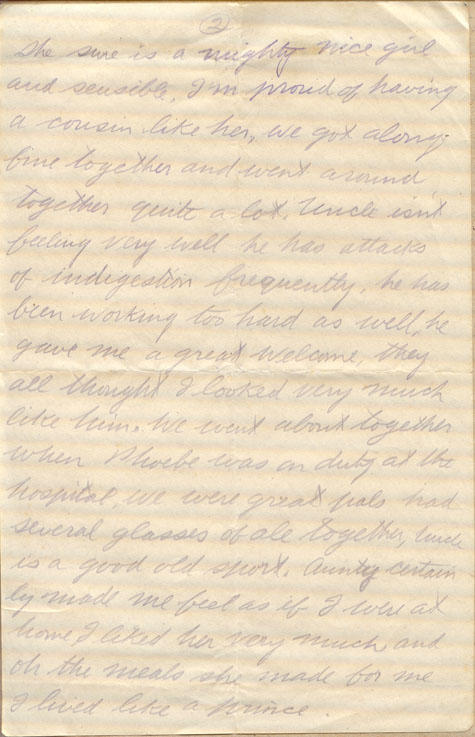 2
She sure is a mighty nice girl
and sensible, I'm proud of having
a cousin like her, we got along
fine together and went around
together quite a lot. Uncle isn't
feeling very well he has attacks
of indigestion frequently, he has
been working too hard as well, he
gave me a great welcome, they
all thought I looked very much
like him. We went about together
when Phoebe was on duty at the
hospital, we were great pals had
several glasses of ale together, Uncle
is a good old sport. Aunty certain
ly made me feel as if I were at
home I liked her very much and
oh the meals she made for me
I lived like a prince.